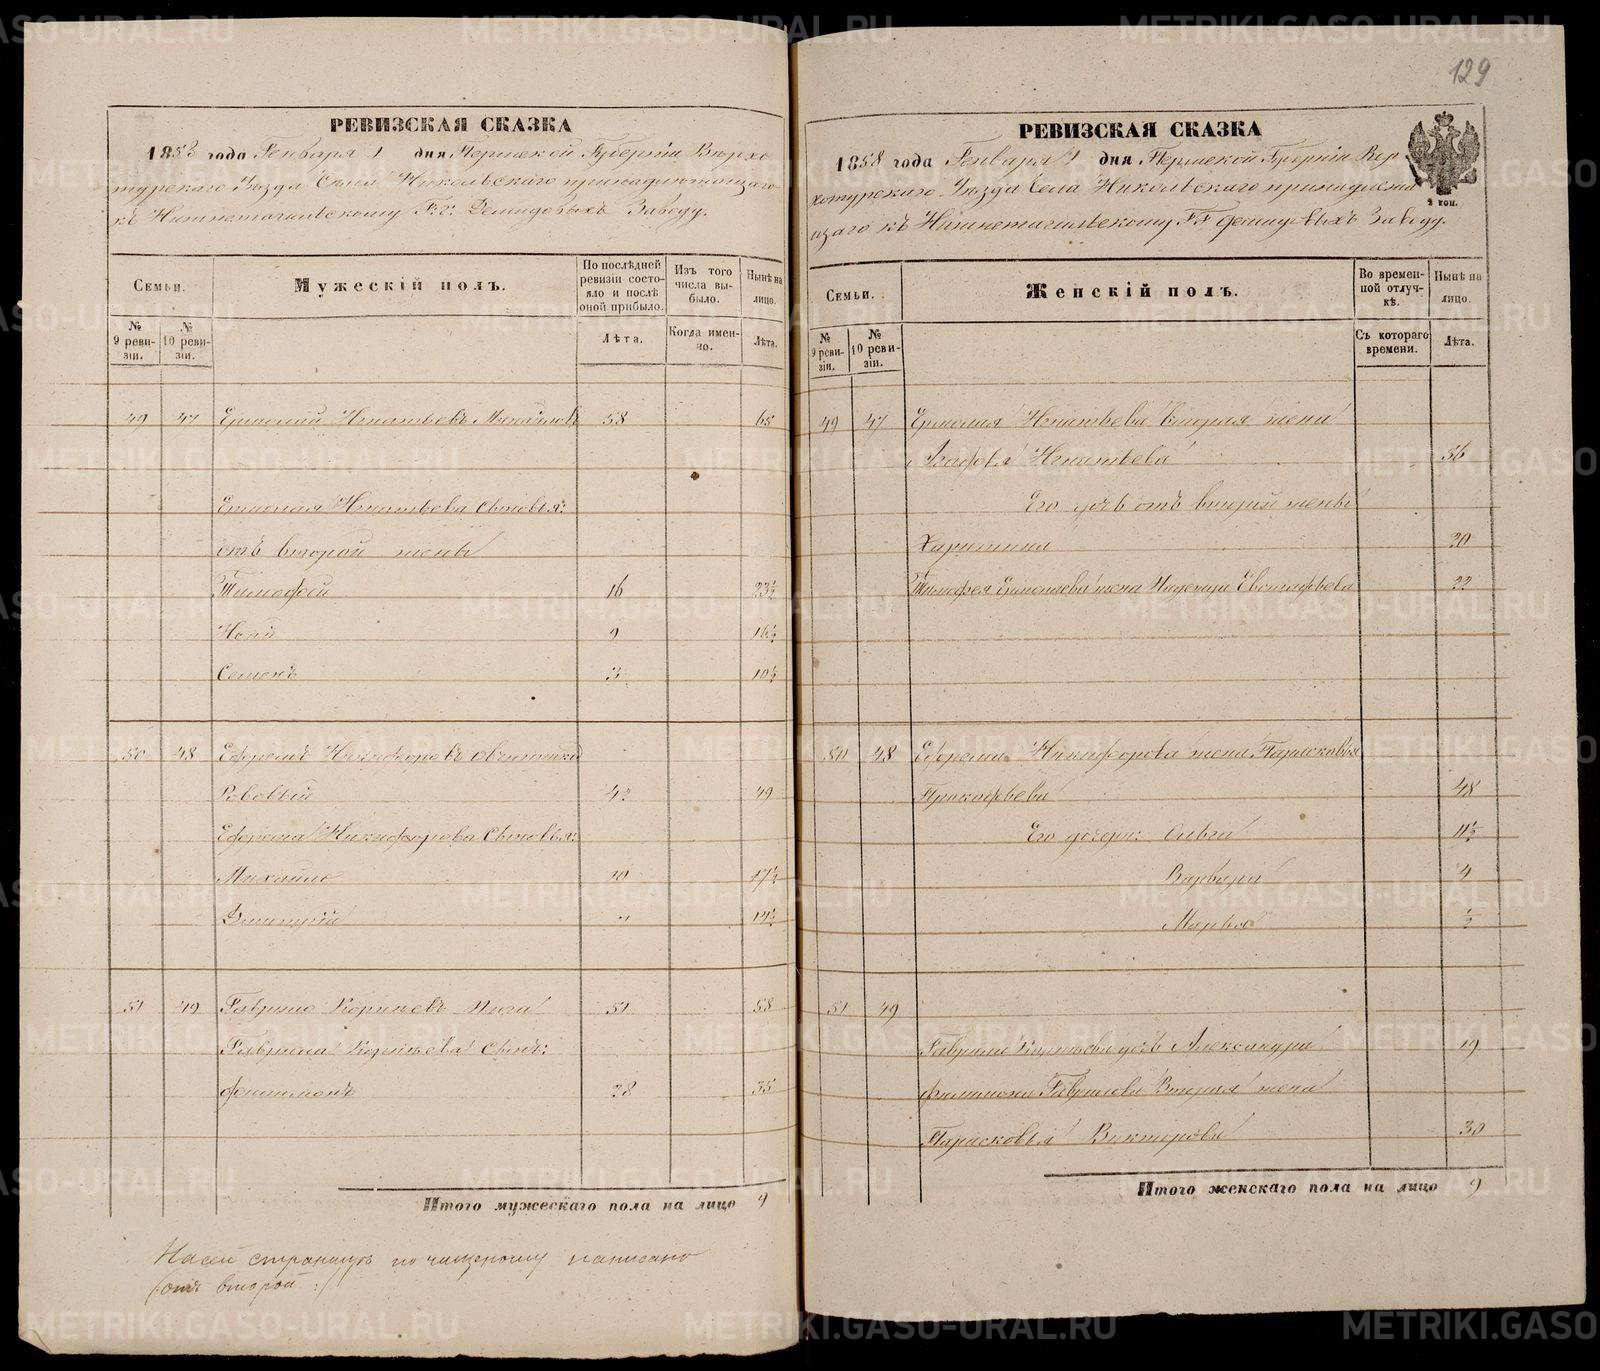 129
РЕВИЗСКАЯ СКАЗКА
1853 года Генваря 1 дня Пермской Губерніи Верхо
турскаго Уѣзда Села Никольскаго принадлежащаго
къ Нижнетагильскому Г.г. Демидовыхъ Заводу.
Семьи.
Мужескій полъ.
По послѣдней ревизіи состояло и послѣ оной прибыло.
Изъ того числа выбыло.
Нынѣ на лицо.
№ 9 ревизіи.
№ 10 ревизіи.
Лѣта.
Когда именно.
Лѣта.
49 47 Ермолай Игнатьевъ 58 65
Ермолая Игнатьева Сыновья:
отъ второй жены
Тимофей 16 23½
9 16½
Семенъ 3 10½
50 48 Ефремъ Никифоровъ
42 49
Ефрема Никифорова Сыновья:
Михайло 10 17½
Дмитрій 7 14½
51 49 Гаврило 51 58
Гаврила Сынъ:
Филимонъ 28 35
Итого мужескаго пола на лицо 9
На сей страницѣ по чищеному написано
(:отъ второй:)
РЕВИЗСКАЯ СКАЗКА
1858 года Генваря 1 дня Пермской Губерніи Вер
хотурскаго Уѣзда Села Никольскаго принадлежа
щаго къ Нижнетагильскому Г.Г. Демидовыхъ Заводу.
2 коп.
Семьи.
Женскій полъ.
Во временной отлучкѣ.
Нынѣ на лицо.
№ 9 ревизіи.
№ 10 ревизіи.
Съ котораго времени.
Лѣта.
49 47 Ермолая Игнатьева вторая жена
Агафья Игнатьева 56
Его дочь отъ второй жены
Харитина 20
Тимофея Ермолаева жена Надежда Евстафьева 22
50 48 Ефрема Никифорова жена Парасковья
Прокофьева 48
Его дочери: Ольга 11½
Варвара 4
Марья ½
51 49
Гаврила дочь Александра 19
Филимона Гаврилова Вторая жена
Парасковья Викторова 30
Итого женскаго пола на лицо 9
METRIKI.GASO-URAL.RU